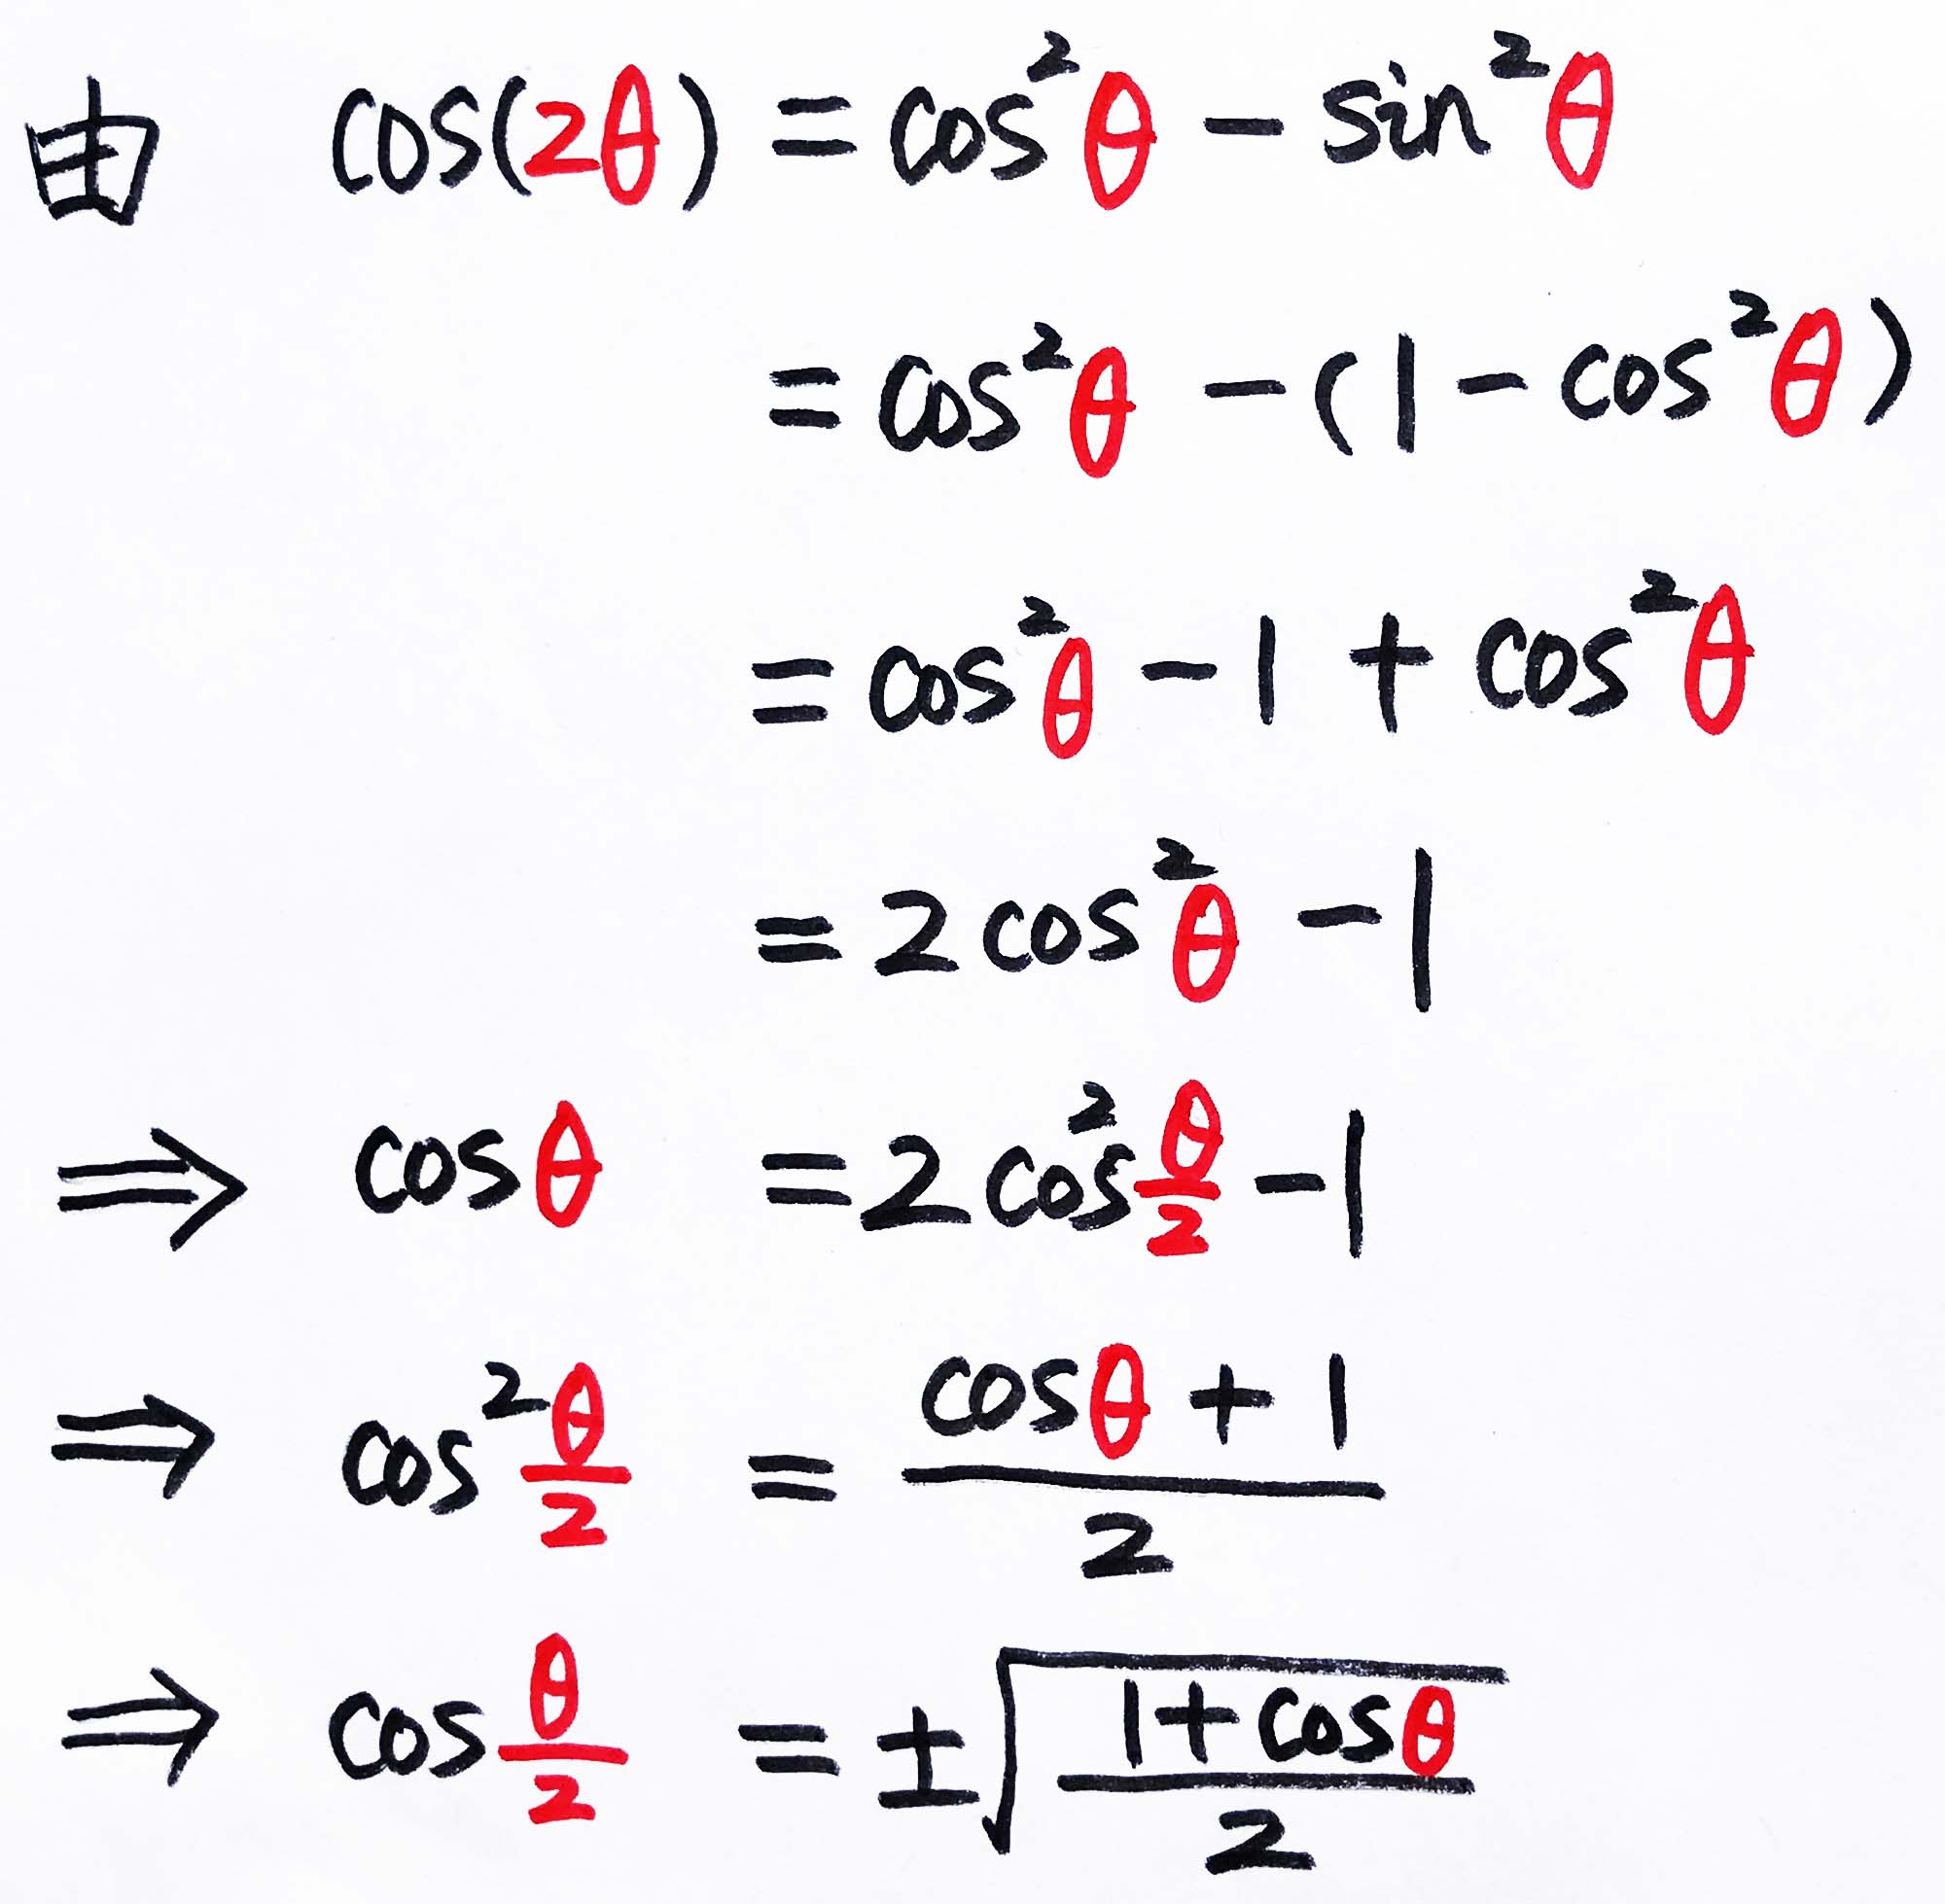 由 cos(2θ) = cos²θ - sin²θ
= cos²θ - (1 - cos²θ)
= cos²θ - 1 + cos²θ
= 2cos²θ - 1
⇒ cosθ = 2cos²θ/2 - 1
⇒ cos²θ/2 = (cosθ + 1)/2
⇒ cosθ/2 = ±√((1 + cosθ)/2)